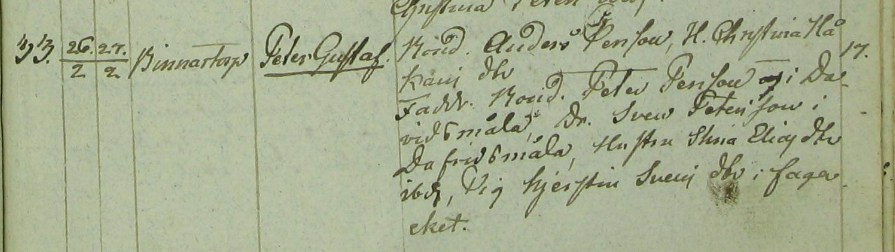 Christina Peters
93. 26/2 27/2 Binnartorp Peter Gustaf. Bond. Anders Persson, H. Christina Hå 17.
kans dtr
Faddr. Bond. Peter Persson i Da
vidsmåla, Dr. Sven Petersson i
Dafridsmåla, Hustru Stina Elias dtr
ibd, Pig Kjerstin Svens dtr i Fager
eket.